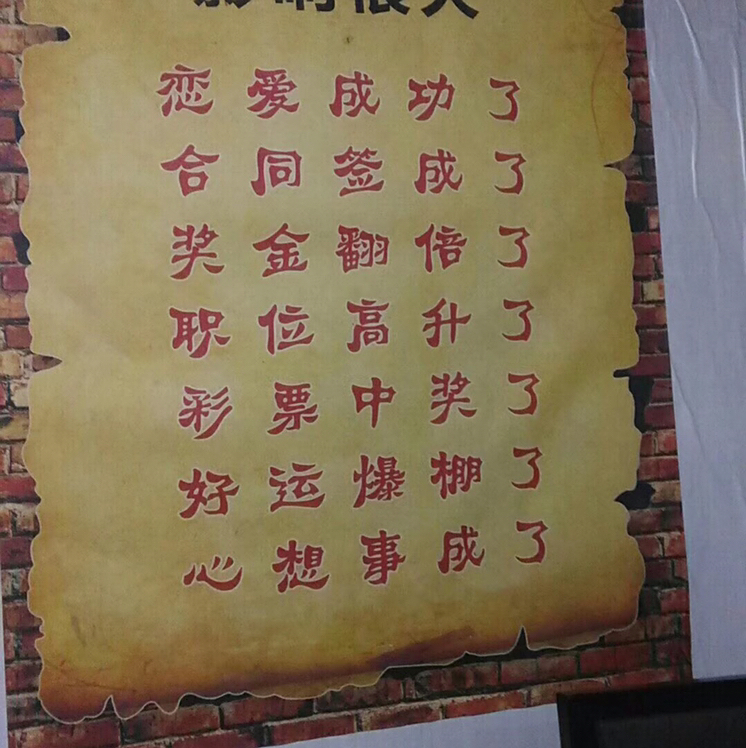 影响很大
恋爱成功了
合同签成了
奖金翻倍了
职位高升了
彩票中奖了
好运爆棚了
心想事成了